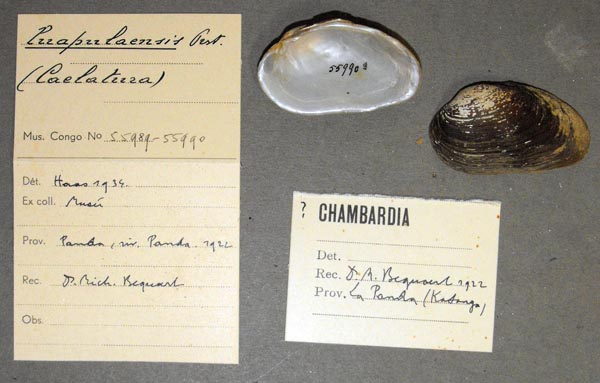 (Caelatura)
Mus. Congo No 55989-55990
Dét. Haas 1934.
Ex coll. Musée
Prov. Panda, riv. Panda. 1922
Rec. Dr. Rich. Bequaert
Obs.
55990
? CHAMBARDIA
Det.
Rec. D. R. Bequaert 1922
Prov. La Panda (Katanga)